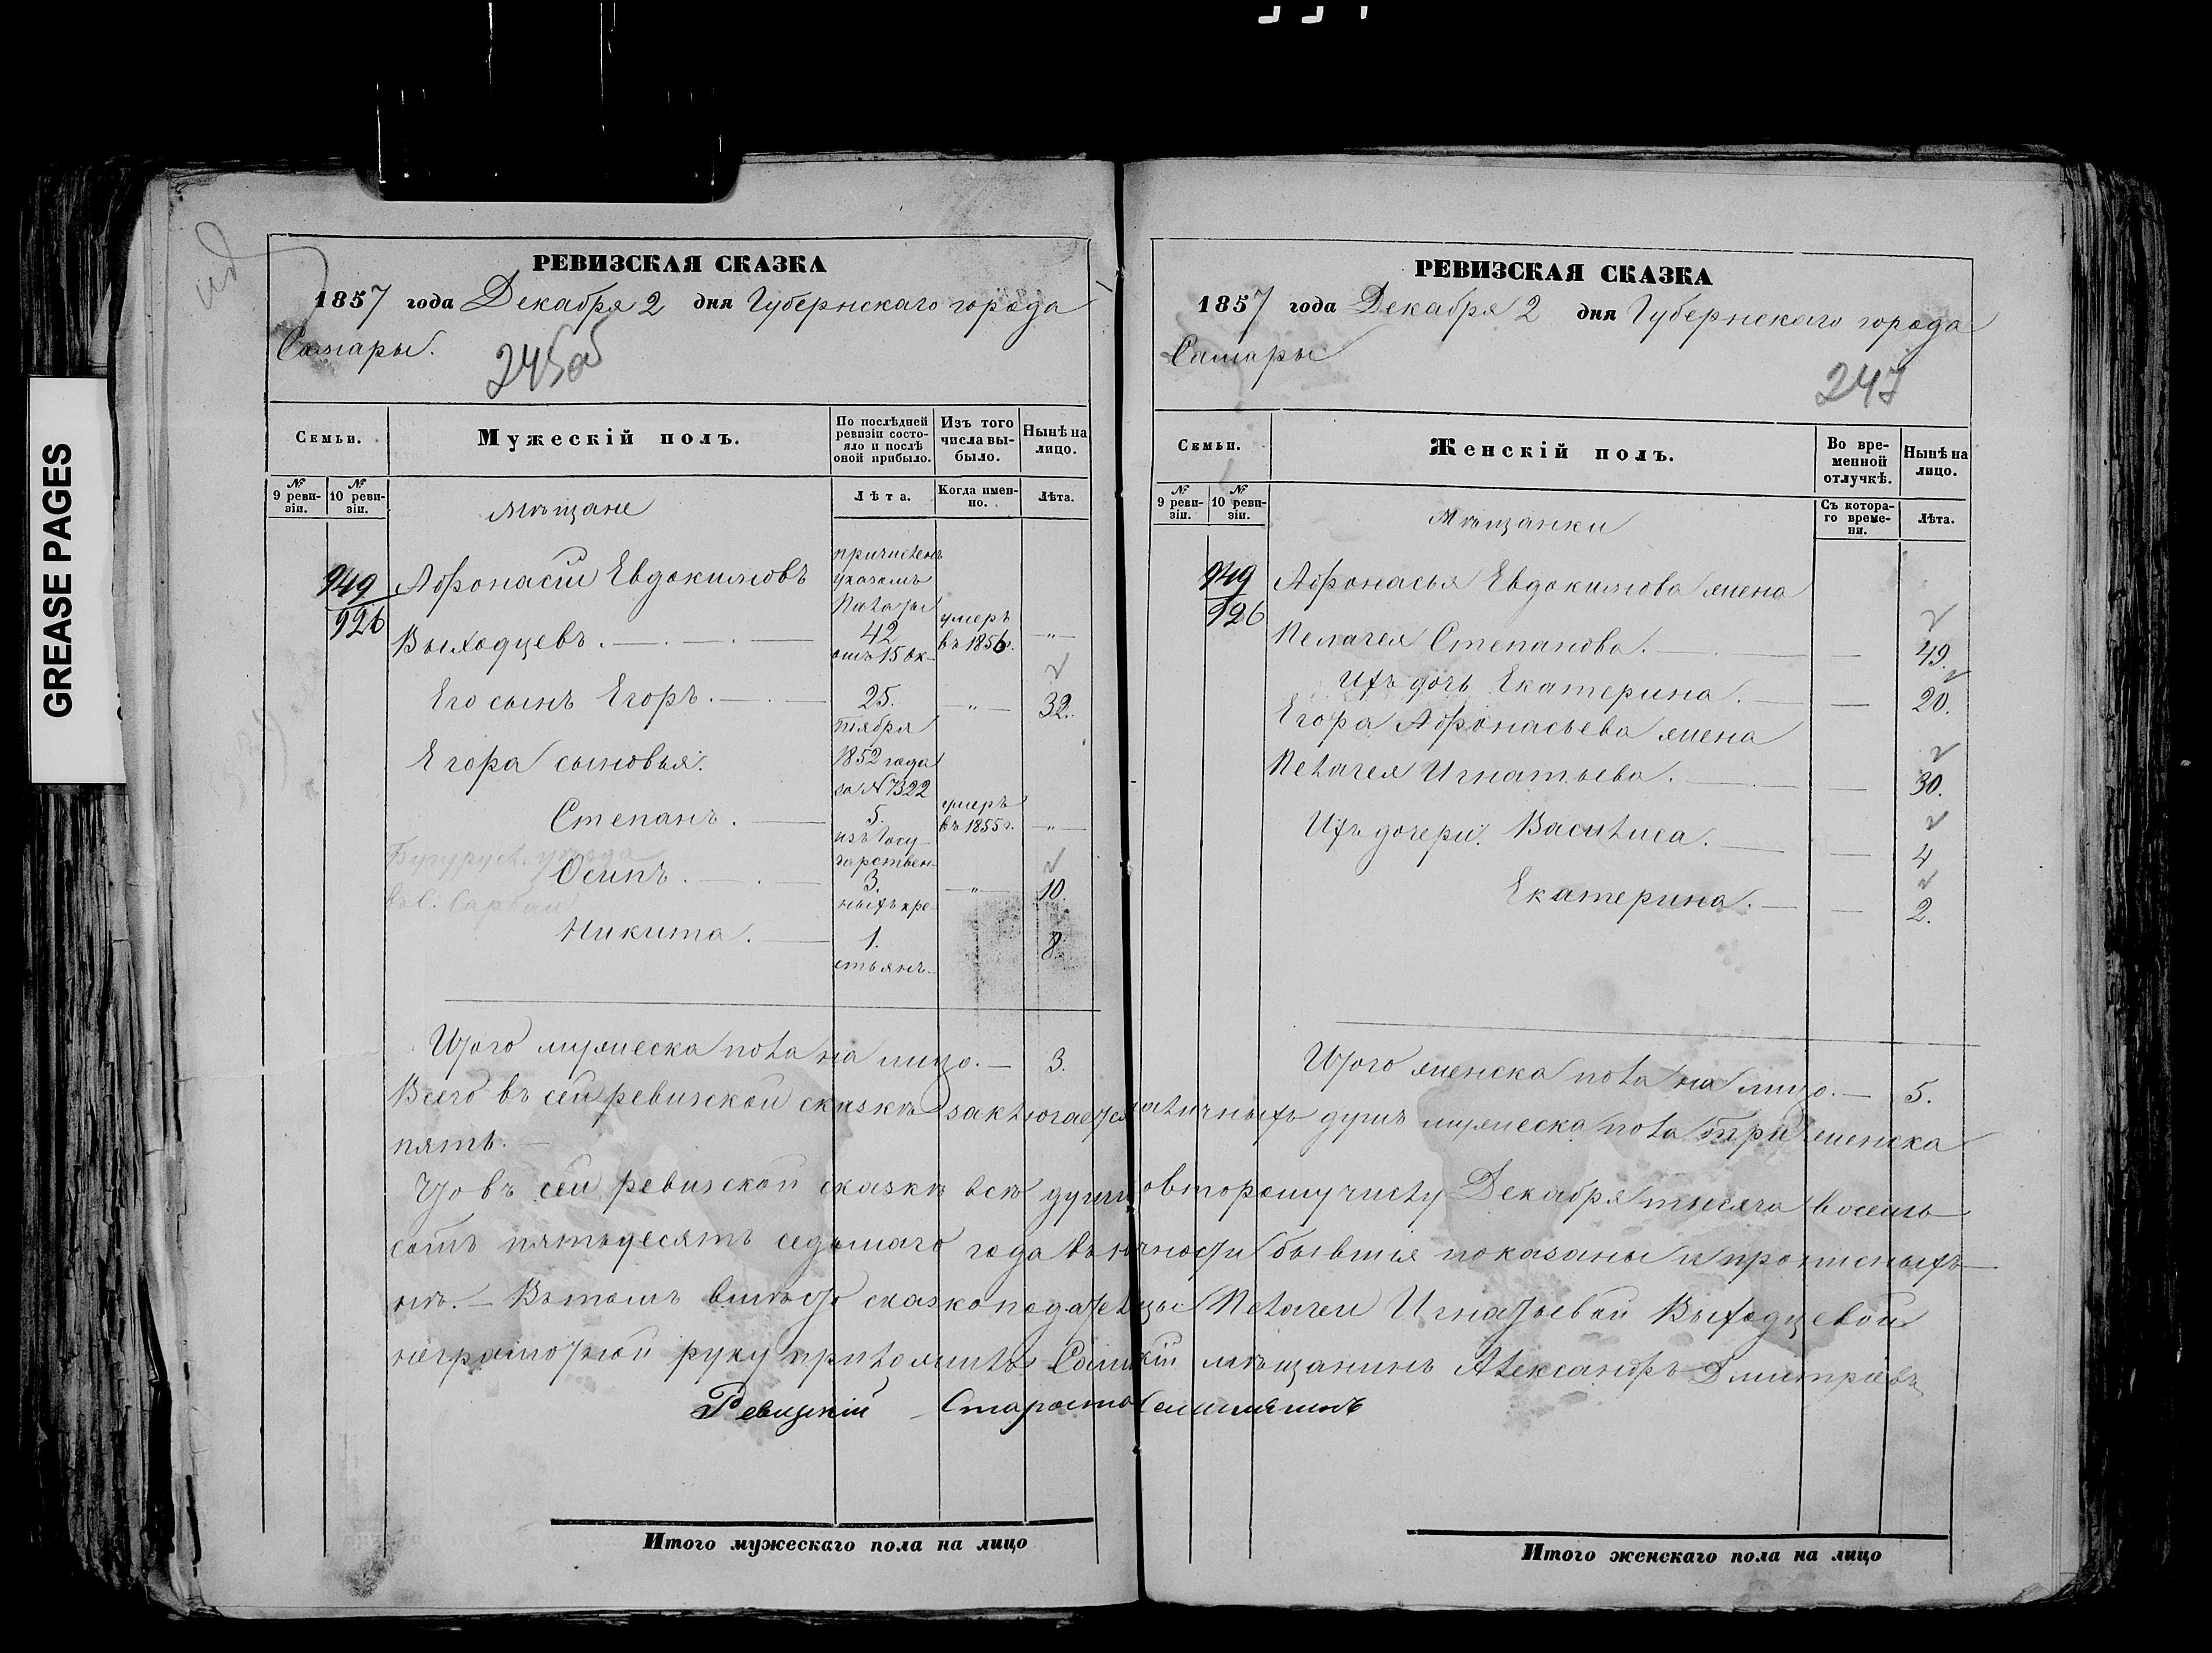 GREASE PAGES
РЕВИЗСКАЯ СКАЗКА
1857 года Декабря 2 дня Губернскаго города
Самары.
245об
Семьи.
Мужескій полъ.
По послѣдней ревизіи состо-
яло и послѣ
оной прибыло.
Изъ того
числа вы-
было.
Нынѣ на
лицо.
№ 9 реви-
зіи.
№ 10 реви-
зіи.
Мѣщане
Лѣта.
Когда имен-
но.
Лѣта.
949
926
Афонасій Евдокимовъ
Выходцевъ.
причисленъ
указомъ
Палаты
42
умеръ
въ 1856г.
отъ 15 Ок-
Его сынъ Егоръ.
25.
32.
тября
Егора сыновья:
1852 года
за № 7322
Степанъ.
5.
умеръ
въ 1855г.
изъ Госу-
Бугурусл. уѣзда
дарствен-
Осипъ.
3.
10.
ныхъ кре-
Никита.
1.
8.
стьянъ.
Итого мужеска пола на лицо. — 3.
РЕВИЗСКАЯ СКАЗКА
1857 года Декабря 2 дня Губернскаго города
Самары
247
Семьи.
Женскій полъ.
Во вре-
менной
отлучкѣ.
Нынѣ на
лицо.
№ 9 реви-
зіи.
№ 10 реви-
зіи.
Мѣщанки
Съ котора-
го време-
ни.
Лѣта.
949
926
Афонасья Евдокимова жена
Пелагея Степанова. — 49.
Ихъ дочь Екатерина. — 20.
Егора Афонасьева жена
Пелагея Игнатьева. — 30.
Ихъ дочери: Василиса. — 4
Екатерина. — 2.
Итого женска пола на лицо. — 5.
Всего въ сей ревизской сказкѣ заключается наличныхъ душъ мужеска пола три женска
пять. —
Что въ сей ревизской сказкѣ всѣ души по второму числу Декабря тысяча восемь
сотъ пятьдесятъ седьмаго года въ наличности бывшія показаны и прописныхъ
нѣтъ. — Въ томъ вмѣсто сказкоподательницы Пелагеи Игнатьевой Выходцевой
неграмотной руку приложилъ Самарскій мѣщанинъ Александръ Дмитріевъ
Ревизскій Староста
Итого мужескаго пола на лицо
Итого женскаго пола на лицо